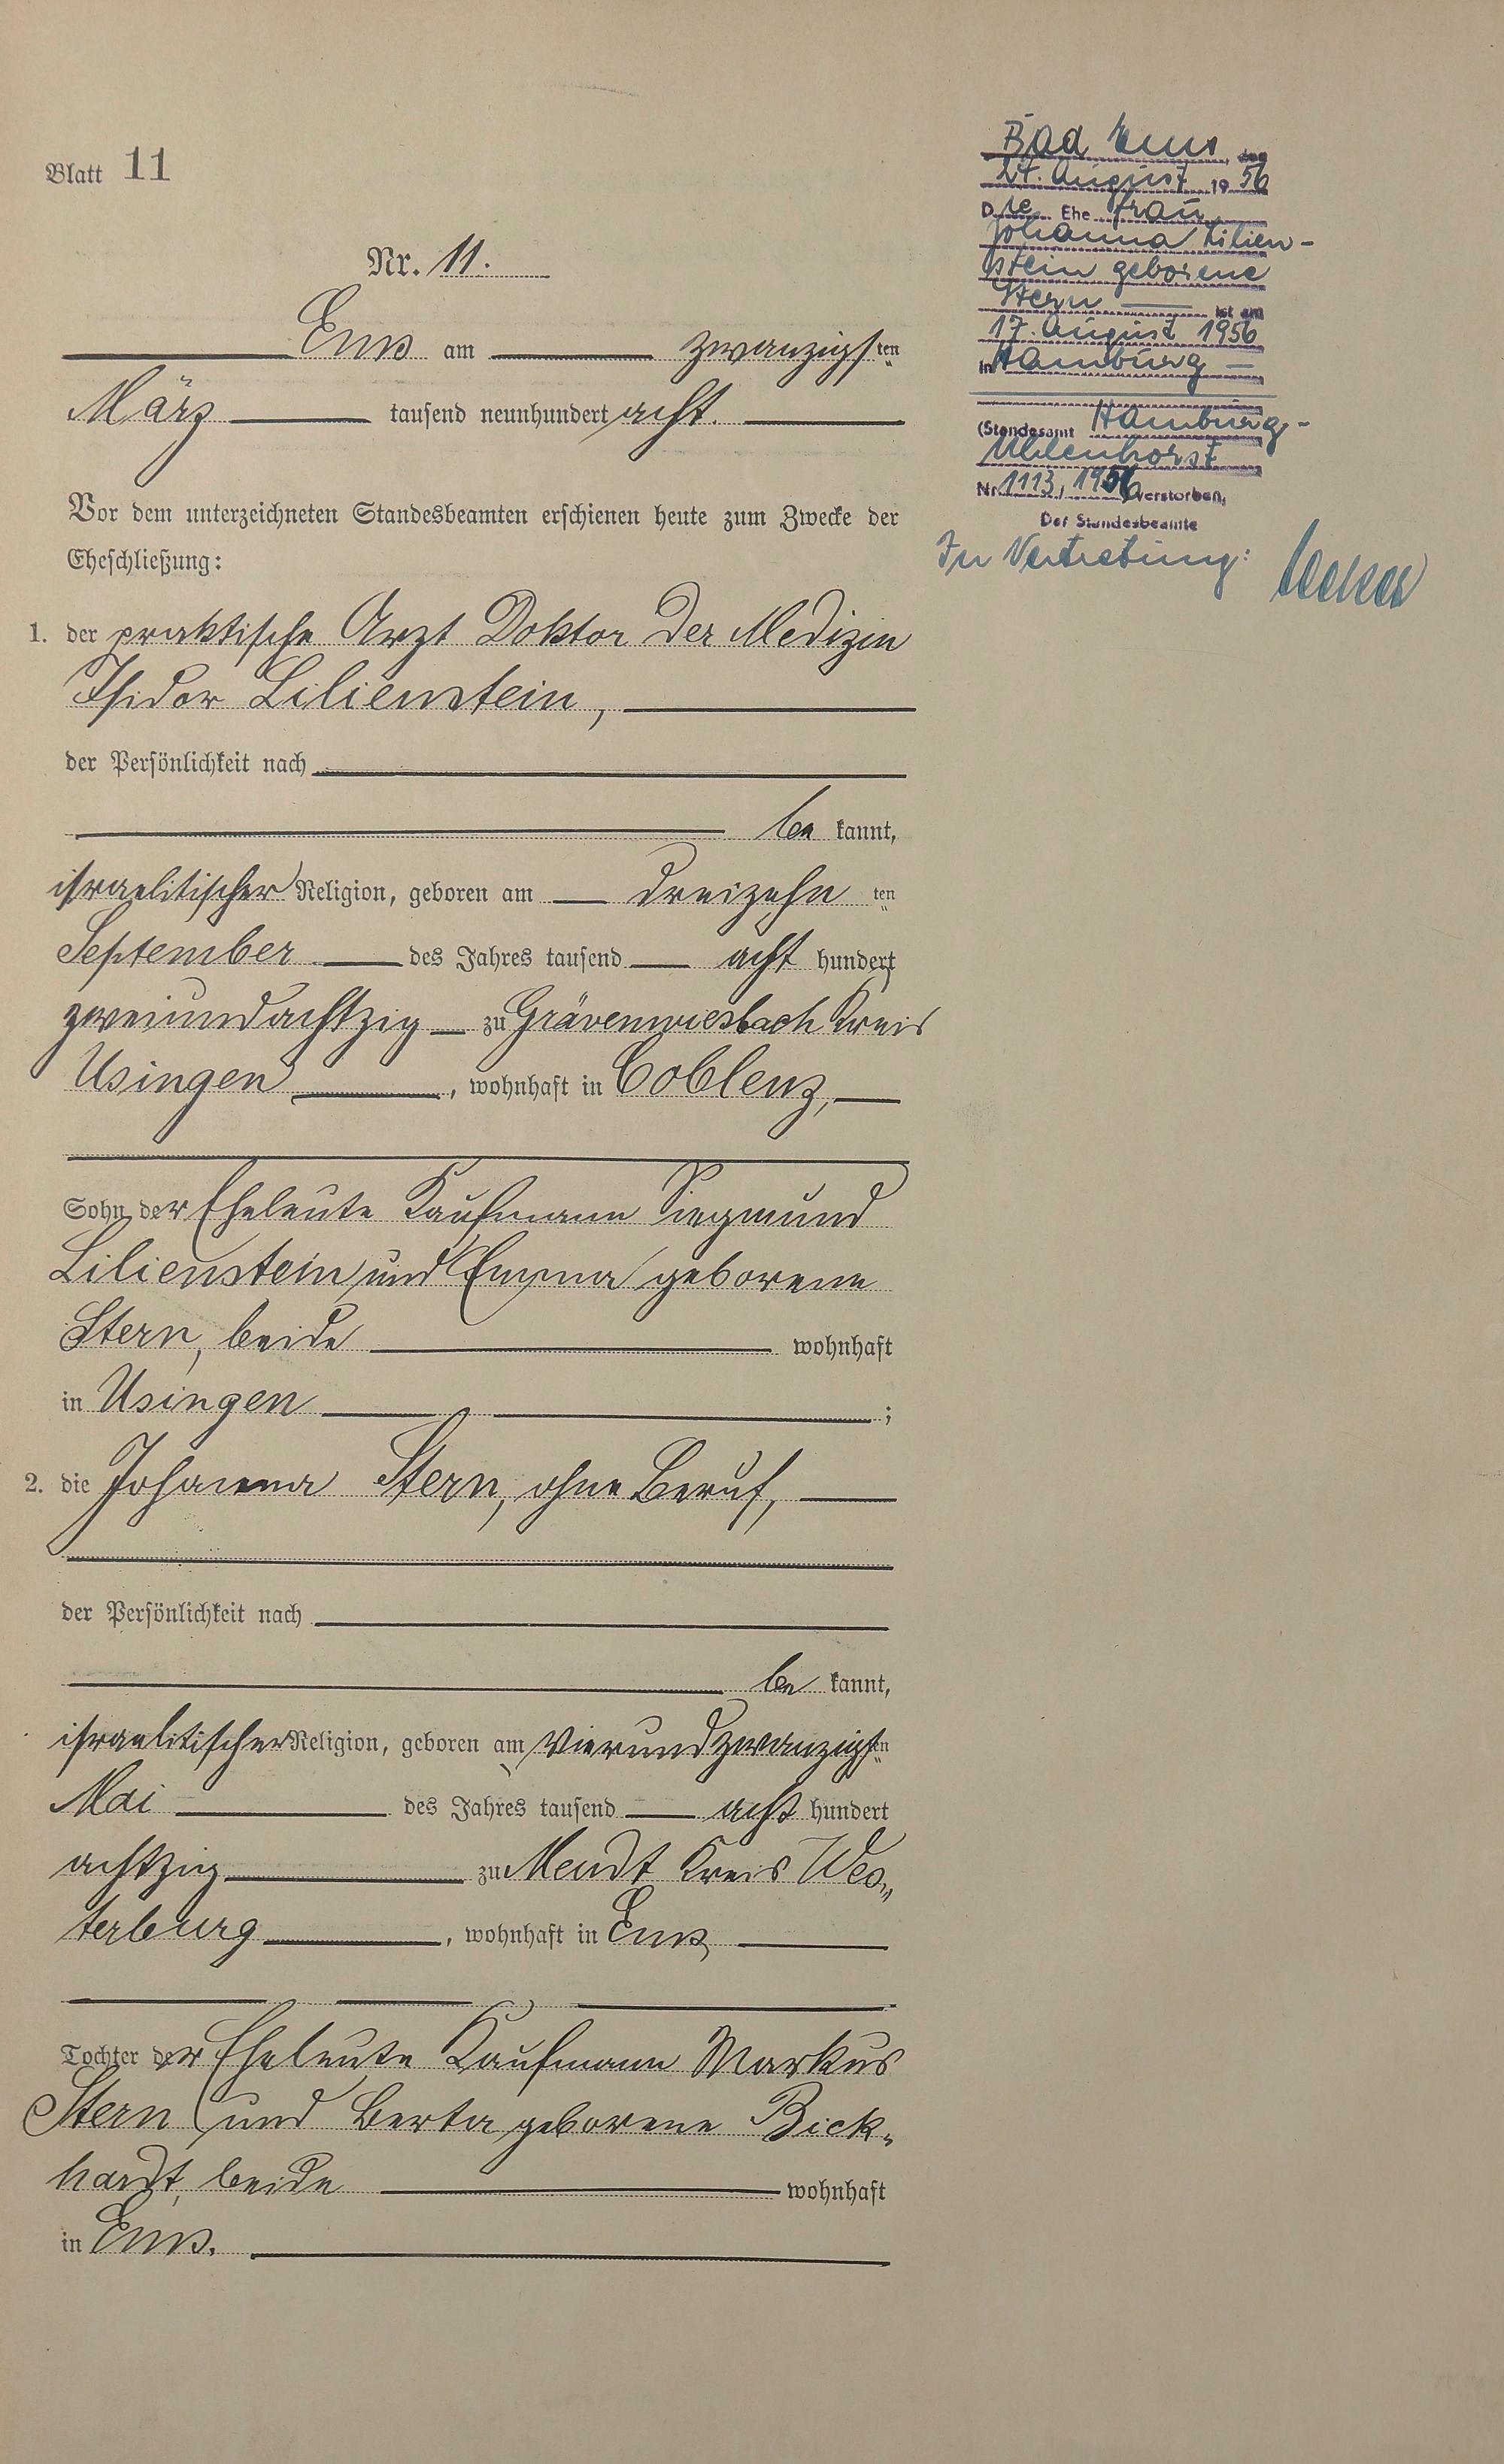 Blatt 11
Nr. 11.
Ems am zwanzigsten
März tausend neunhundert acht.
Vor dem unterzeichneten Standesbeamten erschienen heute zum Zwecke der
Eheschließung:
1. der praktische Arzt Doktor der Medizin
Isidor Lilienstein,
der Persönlichkeit nach
be kannt,
israelitischer Religion, geboren am dreizehn ten
September des Jahres tausend acht hundert
zweiundachtzig zu Grävenwiesbach Kreis
Usingen, wohnhaft in Coblenz,
Sohn der Eheleute Kaufmann Siegmund
Lilienstein und Emma geborene
Stern, beide wohnhaft
in Usingen ;
2. die Johanna Stern, ohne Beruf,
der Persönlichkeit nach
be kannt,
israelitischer Religion, geboren am vierundzwanzigsten
Mai des Jahres tausend acht hundert
achtzig zu Meudt Kreis Wes„
terburg, wohnhaft in Ems,
Tochter der Eheleute Kaufmann Markus
Stern und Berta geborene Bick„
hardt, beide wohnhaft
in Ems.
Bad Ems, den
27. August 1956
Die Ehefrau
Johanna Lilien-
stein geborene
Stern ist am
17. August 1956
in Hamburg
(Standesamt Hamburg-
Uhlenhorst
Nr. 1113/1956 verstorben.
Der Standesbeamte
In Vertretung: